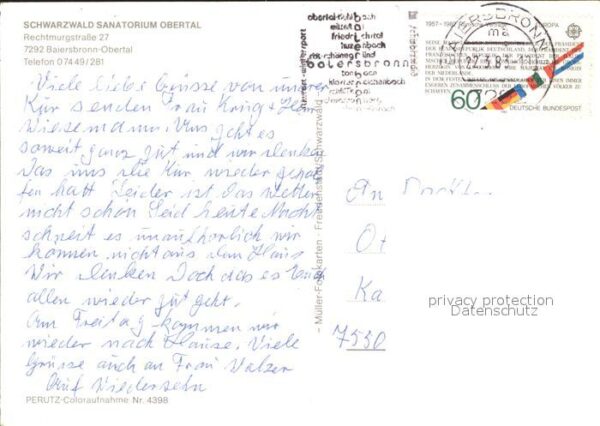 SCHWARZWALD SANATORIUM OBERTAL
Rechtmurgstraße 27
7292 Baiersbronn-Obertal
Telefon 07449/281
Viele liebe Grüsse von unserer
Kür senden Frau Krug + Herr
Wiesemann. Uns geht es
soweit ganz gut und wir denken
Das uns die Kür wieder geho
fen hatt Leider ist das Wetter
nicht schön Seid heute Nacht
schneit es unaufhörlich wir
können nicht aus dem Haus
Wir denken Doch das es Euch
allen wieder gut geht.
Am Freitag kommen wir
wieder nach Hause. Viele
Grüsse auch an Frau
Auf Wiedersehn
PERUTZ-Coloraufnahme Nr. 4398
Müller-Fotokarten - Freudenstadt/Schwarzwald
obertal
huzenbach
baiersbronn
BAIERSBRONN
1957-1982
EUROPA
60
DEUTSCHE BUNDESPOST
An
Ot
Ka
7530
privacy protection
Datenschutz